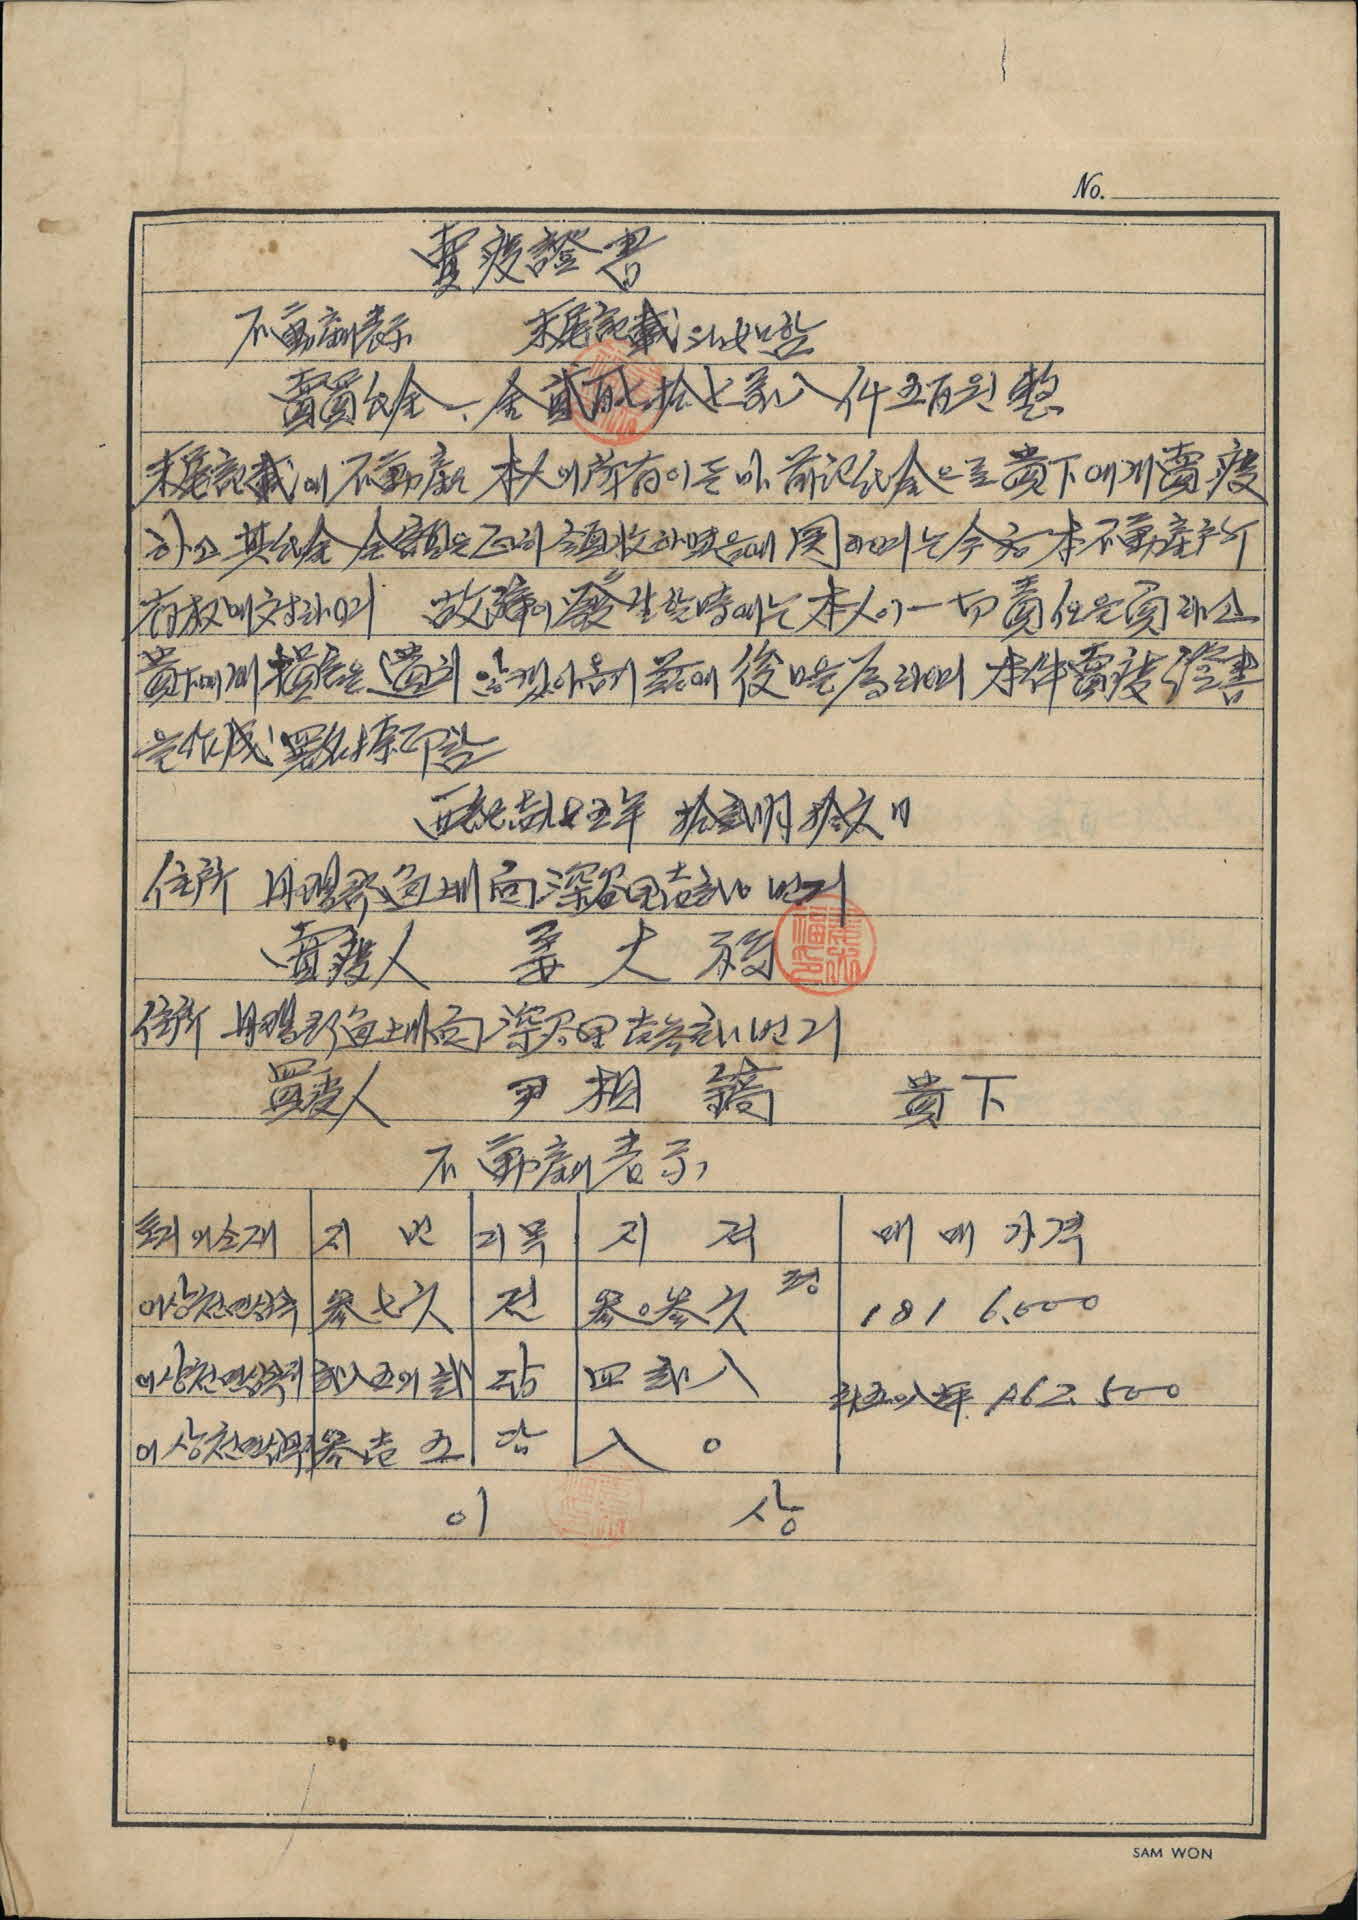 No.
賣渡證書
不動産表示 末尾記載와如함
賣買代金 、 金貳百七拾七萬八仟五百원整
末尾記載에 不動産은 本人에 所有이든바 前記代金으로 貴下에게 賣渡
하고 其代金 全額은 正히 領收하였음에 関하여는 今后 本不動産所
有权에 対하여 故障이 發生할 時에는 本人이 一切責任을 負하고
貴下에게 損害을 遺히 않겠아옵기 玆에 後日을 爲하여 本件賣渡證書
을 作成 署名捺印함
五年 拾貳月 拾六日
住所 面 深谷里 번지
賣渡人 姜大福
住所 面 深谷里 번지
買渡人 尹相鎬 貴下
不動産表示
토지의소재 지 번 지목 지 적 매 매 가격
이상전면심곡 參七六 전 參0參六 평 1816.000
이상전면심곡리 貳八五의貳 답 四貳八 162.500
이상전면심곡 參壱五 답 八0
이 상
SAM WON